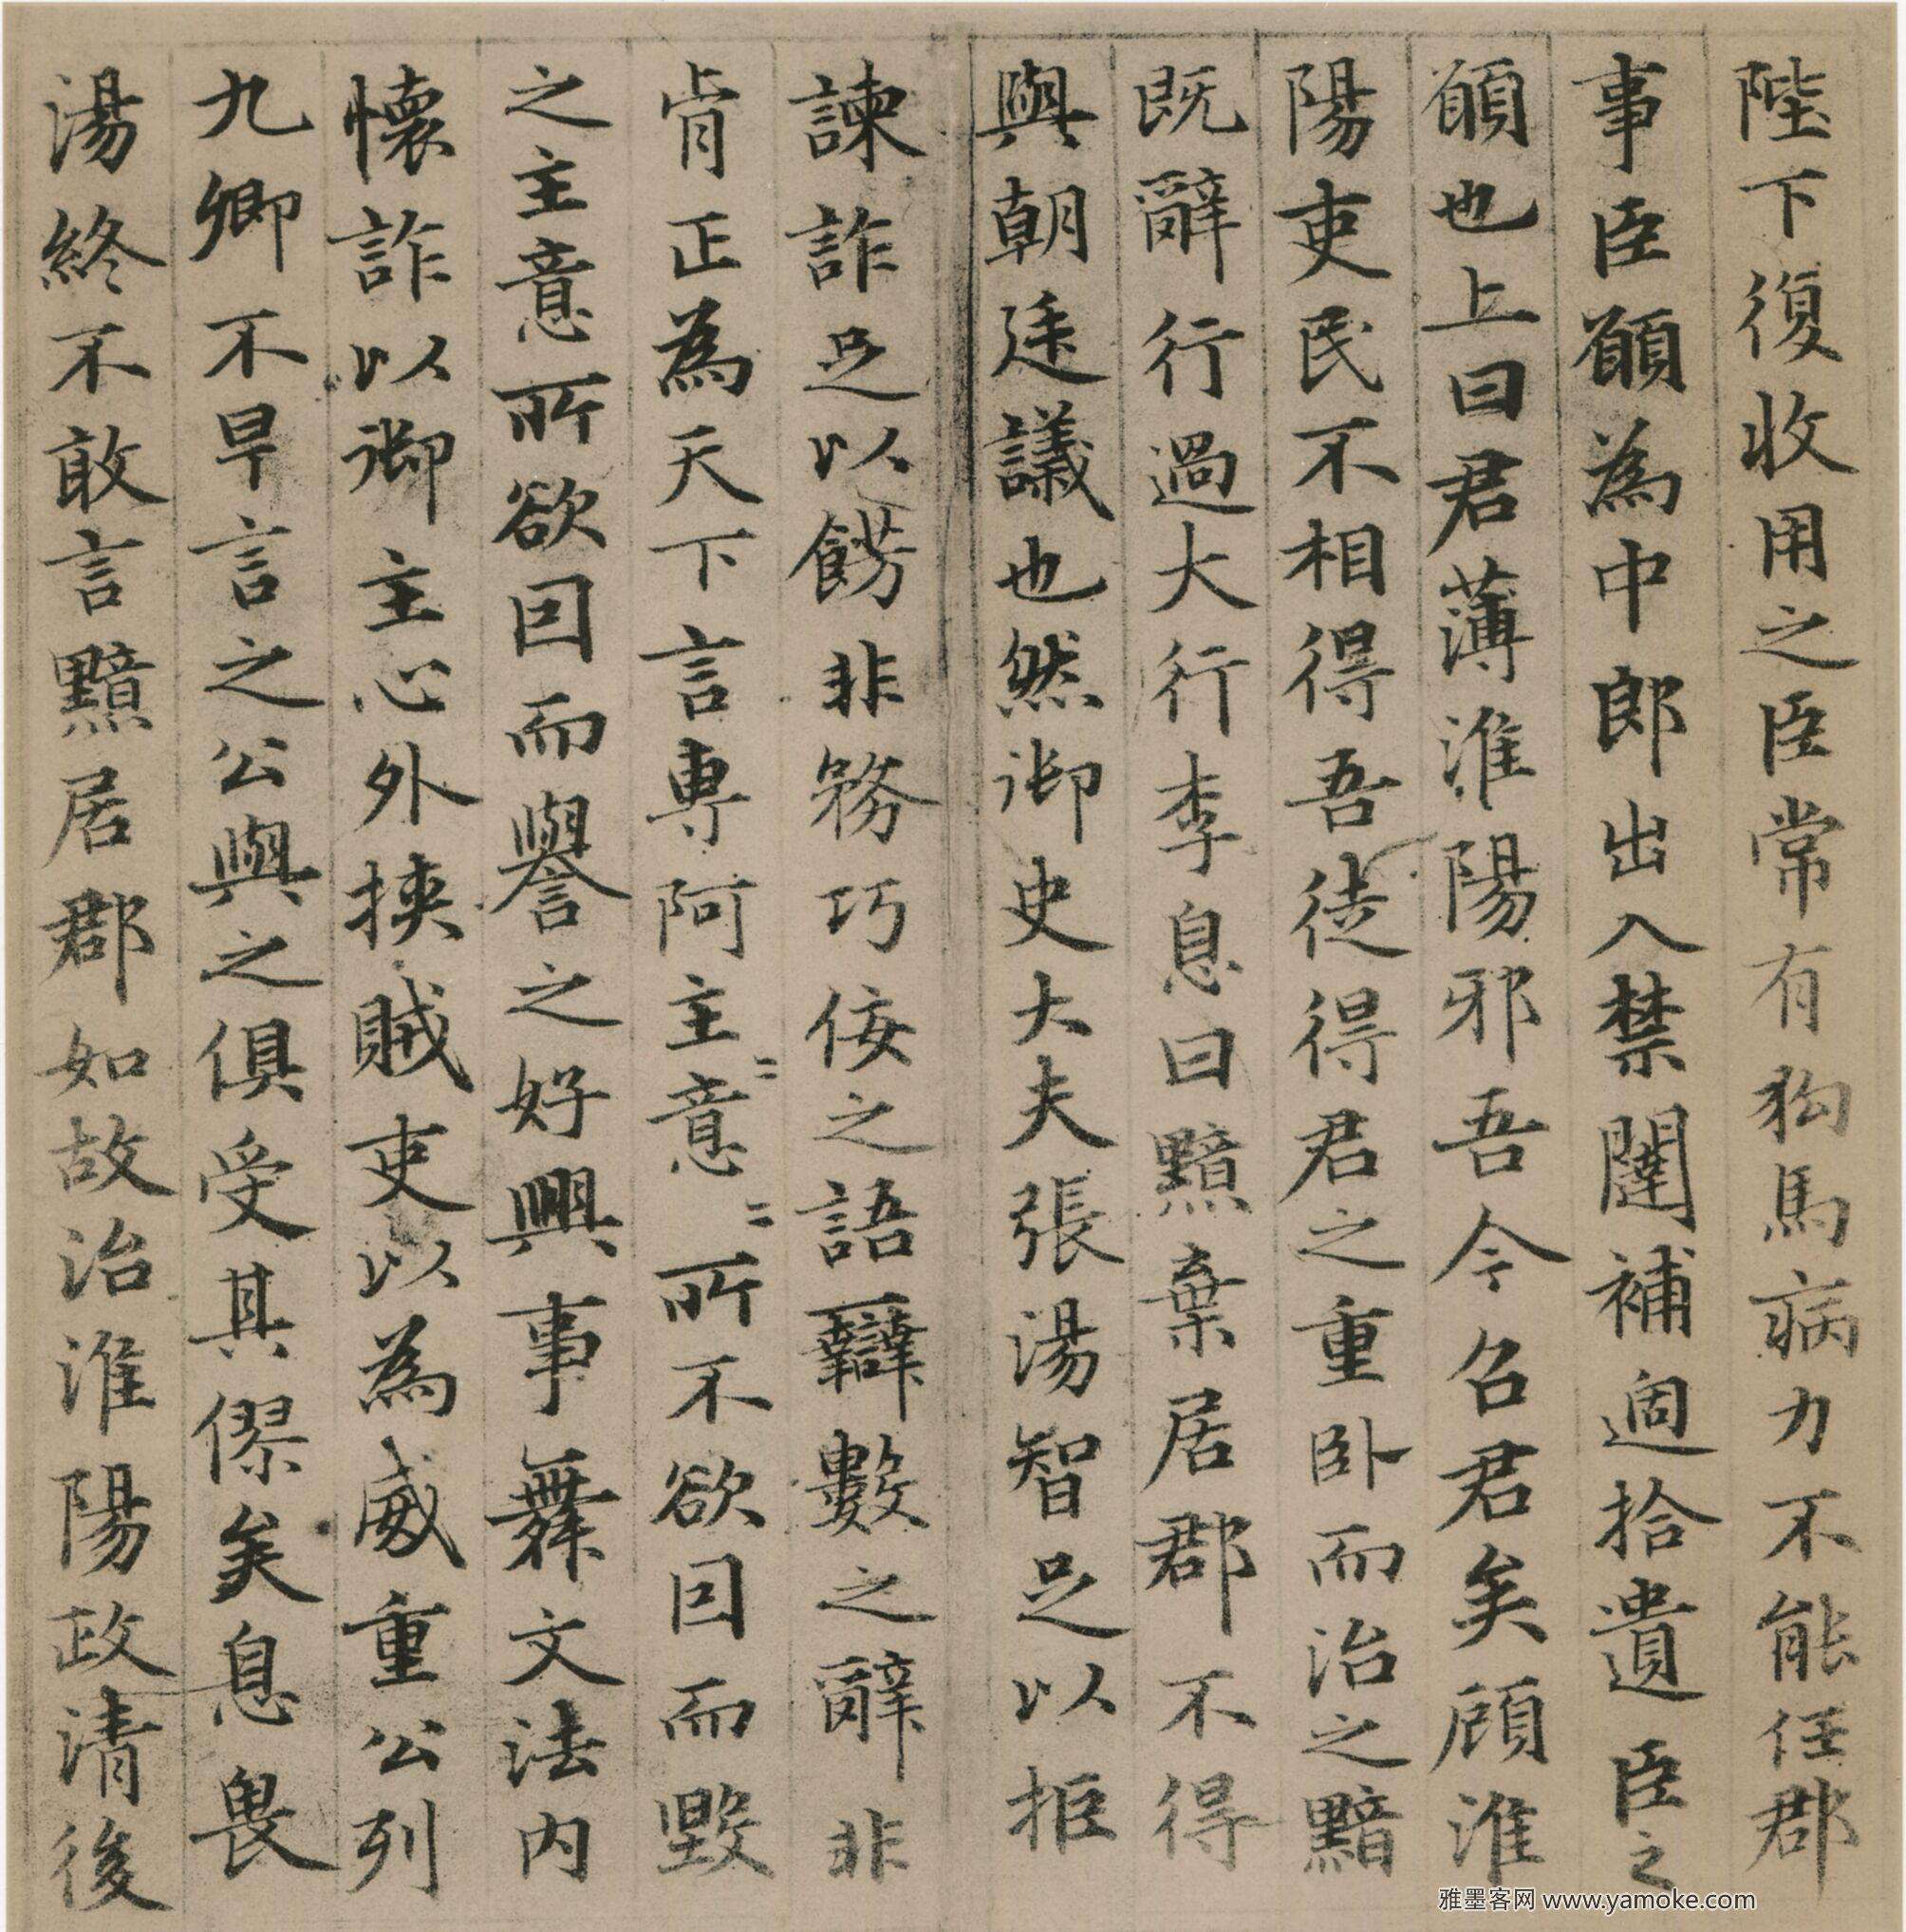 陛下復收用之臣常有狗馬病力不能任郡
事臣願為中郎出入禁闥補過拾遺臣之
願也上曰君薄淮陽邪吾今召君矣顧淮
陽吏民不相得吾徒得君之重卧而治之黯
既辭行行過大行李息曰黯棄居郡不得
與朝廷議也然御史大夫張湯智足以拒
諫詐足以餝非務巧佞之語辯數之辭非
肯正為天下言專阿主意〻〻所不欲因而毀
之主意所欲因而譽之好興事舞文法内
懷詐以御主心外挾賊吏以為威重公列
九卿不早言之公與之俱受其僇矣息畏
湯終不敢言黯居郡如故治淮陽政清後
雅墨客网 www.yamoke.com